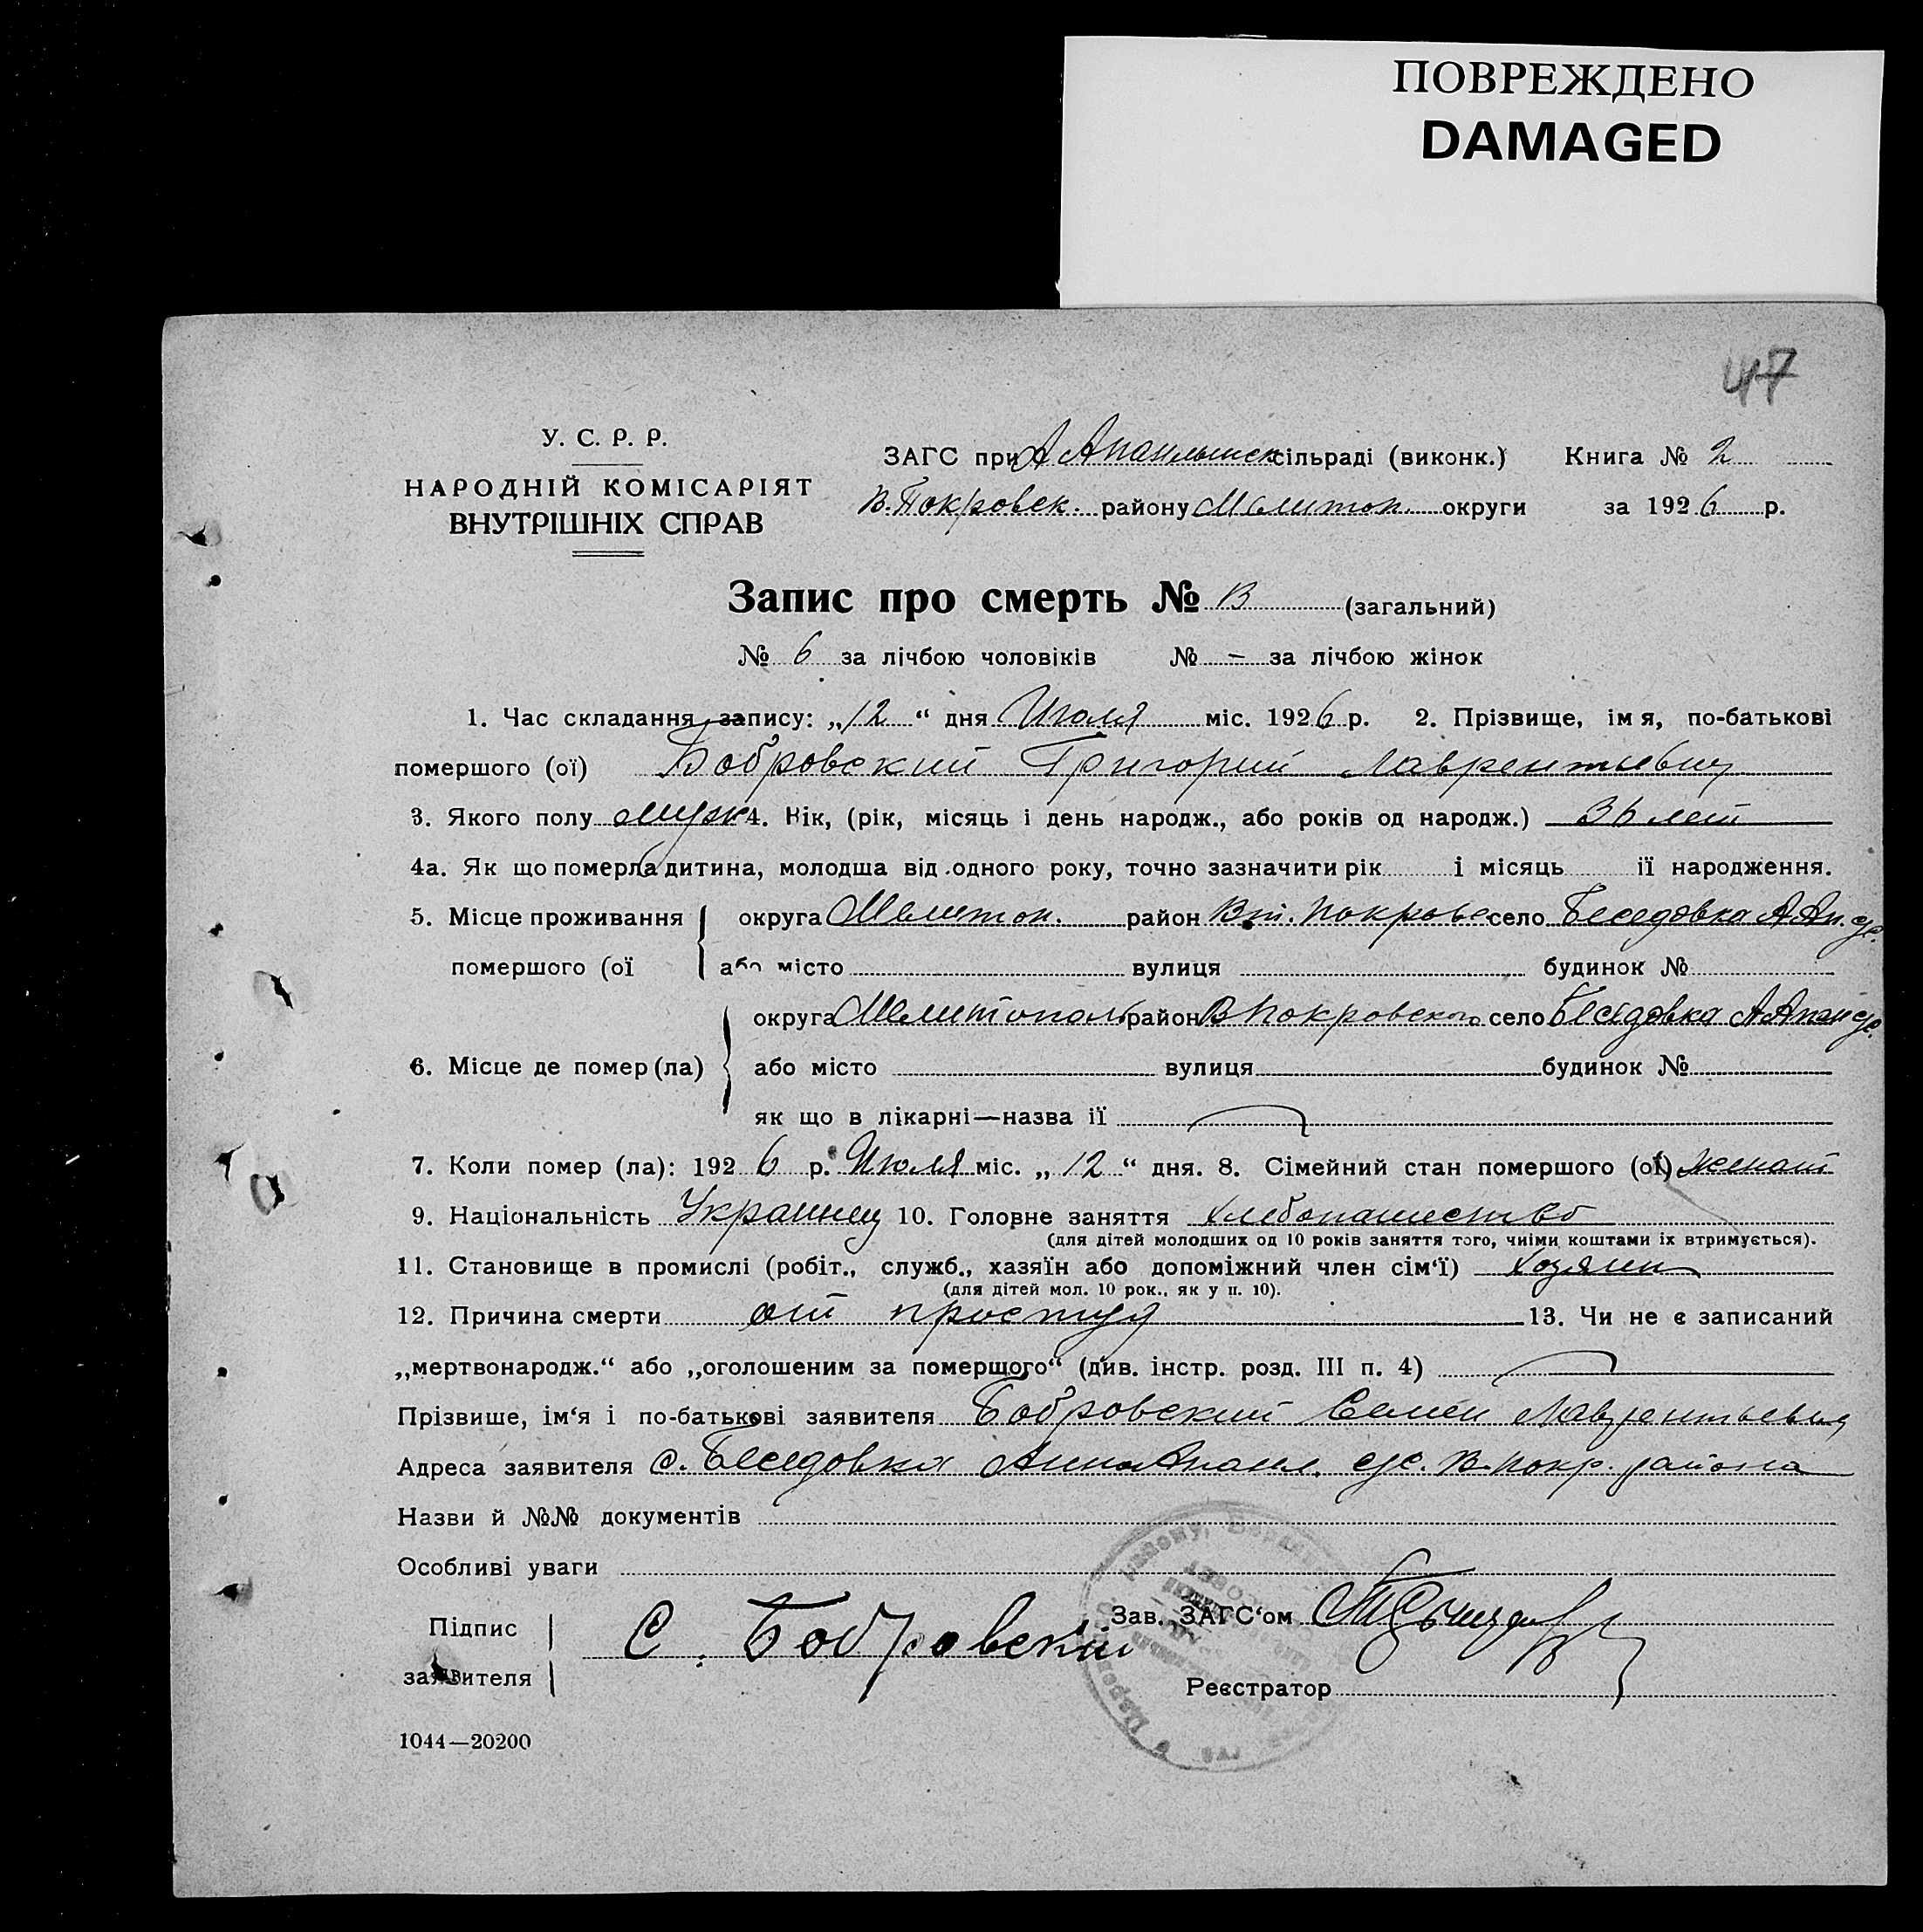 ПОВРЕЖДЕНО
DAMAGED
47
У. С. Р. Р.
НАРОДНІЙ КОМІСАРІЯТ
ВНУТРІШНІХ СПРАВ
ЗАГС при сільраді (виконк.) Книга № 2
В. Покровск. району Мелитоп. округи за 1926 р.
Запис про смерть № 13 (загальний)
№ 6 за лічбою чоловіків № – за лічбою жінок
1. Час складання запису: „12“ дня Июля міс. 1926 р. 2. Прізвище, імя, по-батькові
помершого (ої) Бобровский Григорий Лаврентьевич
3. Якого полу муж 4. Вік, (рік, місяць і день народж., або років од народж.) 36 лет
4а. Як що померла дитина, молодша від одного року, точно зазначити рік і місяць ії народження.
5. Місце проживання округа Мелитоп. район Вт. Покровс село Беседовка А Ап. с/с.
помершого (ої або місто вулиця будинок №
округа Мелитополь район В Покровского село Беседовка А Апан с/с.
6. Місце де помер (ла) або місто вулиця будинок №
як що в лікарні—назва ії
7. Коли помер (ла): 1926 р. Июля міс. „12“ дня. 8. Сімейний стан помершого (ої) женат
9. Національність Украинец 10. Головне заняття хлебопашество
(для дітей молодших од 10 років заняття того, чиїми коштами їх втримується).
11. Становище в промислі (робіт., служб., хазяїн або допоміжний член сім‘ї) хозяин
(для дітей мол. 10 рок., як у п. 10).
12. Причина смерти от простуд 13. Чи не є записаний
„мертвонародж.“ або „оголошеним за померщого“ (див. інстр. розд. III п. 4)
Прізвише, ім‘я і по-батькові заявителя Бобровский Семён Лаврентьевич
Адреса заявителя с. Беседовка Анно Апанл. с/с. В. Покр. района
Назви й №№ документів
Особливі уваги
Підпис
заявителя
С. Бобровскій
Зав. ЗАГС‘ом
Реєстратор
1044—20200